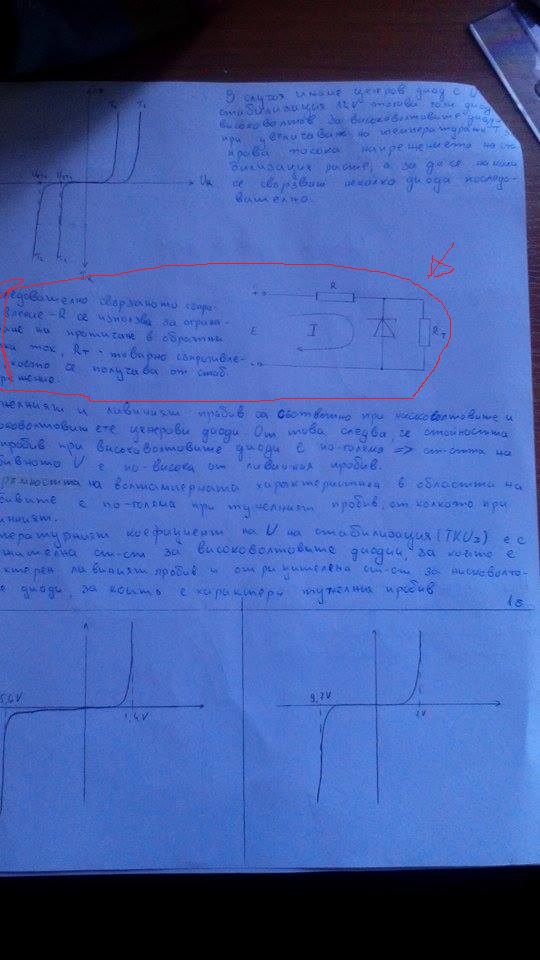 В случая имаме ценеров диод с U
стабилизация 12V тогава този диод
високоволтов за високоволтовите диоди
при увеличаване на температурата
права посока напрежението на ста
билизация расте, а за да се намали
се свързват няколко диода последо-
вателно.
T₂ T₁
U
T₂ T₁
I
следователно свързаното съпро-
вление - R се използва за ограни-
на протичане в обратна
ка ток, Rт - товарно съпротивле-
което се получава от стаб.
R
E
I
Rт
тунелният и лавинния пробив са съответно при нисковолтовите и
високоволтовите ценерови диоди. От това следва, се стойността
пробив при високоволтовите диоди е по-голяма => ст-стта на
U е по-висока от лавинния пробив.
на волтамперната характеристика в областта на
е по-голяма при тунелният пробив, от колкото при
температурният коефициент на U на стабилизация (TKUz) е с
ст-ст за високоволтовите диоди, за които е
лавинният пробив и отрицателена ст-ст за нисковолто-
диоди, за които е характерн тунелния пробив
5,6V
1,4V
9,2V
2V